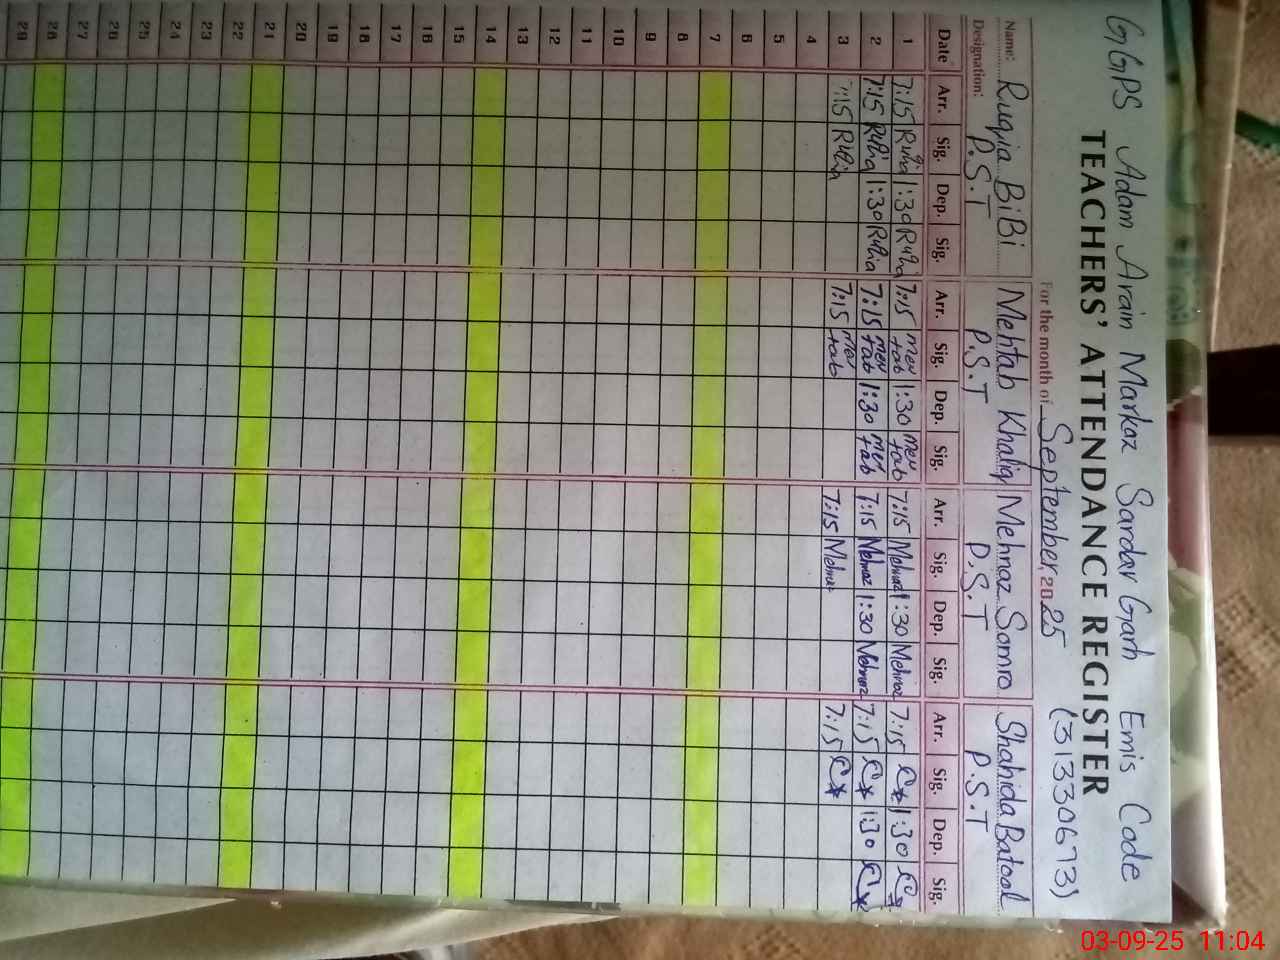 GGPS Adam Arain Markaz Sardar Garh Emis Code
TEACHERS' ATTENDANCE REGISTER (31330673)
For the month of September, 2025
Name: Ruqia BiBi Mehtab Khaliq Mehnaz Somro Shahida Batool
Designation: P.S.T P.S.T P.S.T P.S.T
Date Arr. Sig. Dep. Sig. Arr. Sig. Dep. Sig. Arr. Sig. Dep. Sig. Arr. Sig. Dep. Sig.
1 7:15 Ruqia 1:30 Ruqia 7:15 mehtab 1:30 mehtab 7:15 Mehnaz 1:30 Mehnaz 7:15 1:30
2 7:15 Ruqia 1:30 Ruqia 7:15 mehtab 1:30 mehtab 7:15 Mehnaz 1:30 Mehnaz 7:15 1:30
3 7:15 Ruqia 7:15 mehtab 7:15 Mehnaz 7:15
4
5
6
7
8
9
10
11
12
13
14
15
16
17
18
19
20
21
22
23
24
25
26
27
28
29
03-09-25 11:04